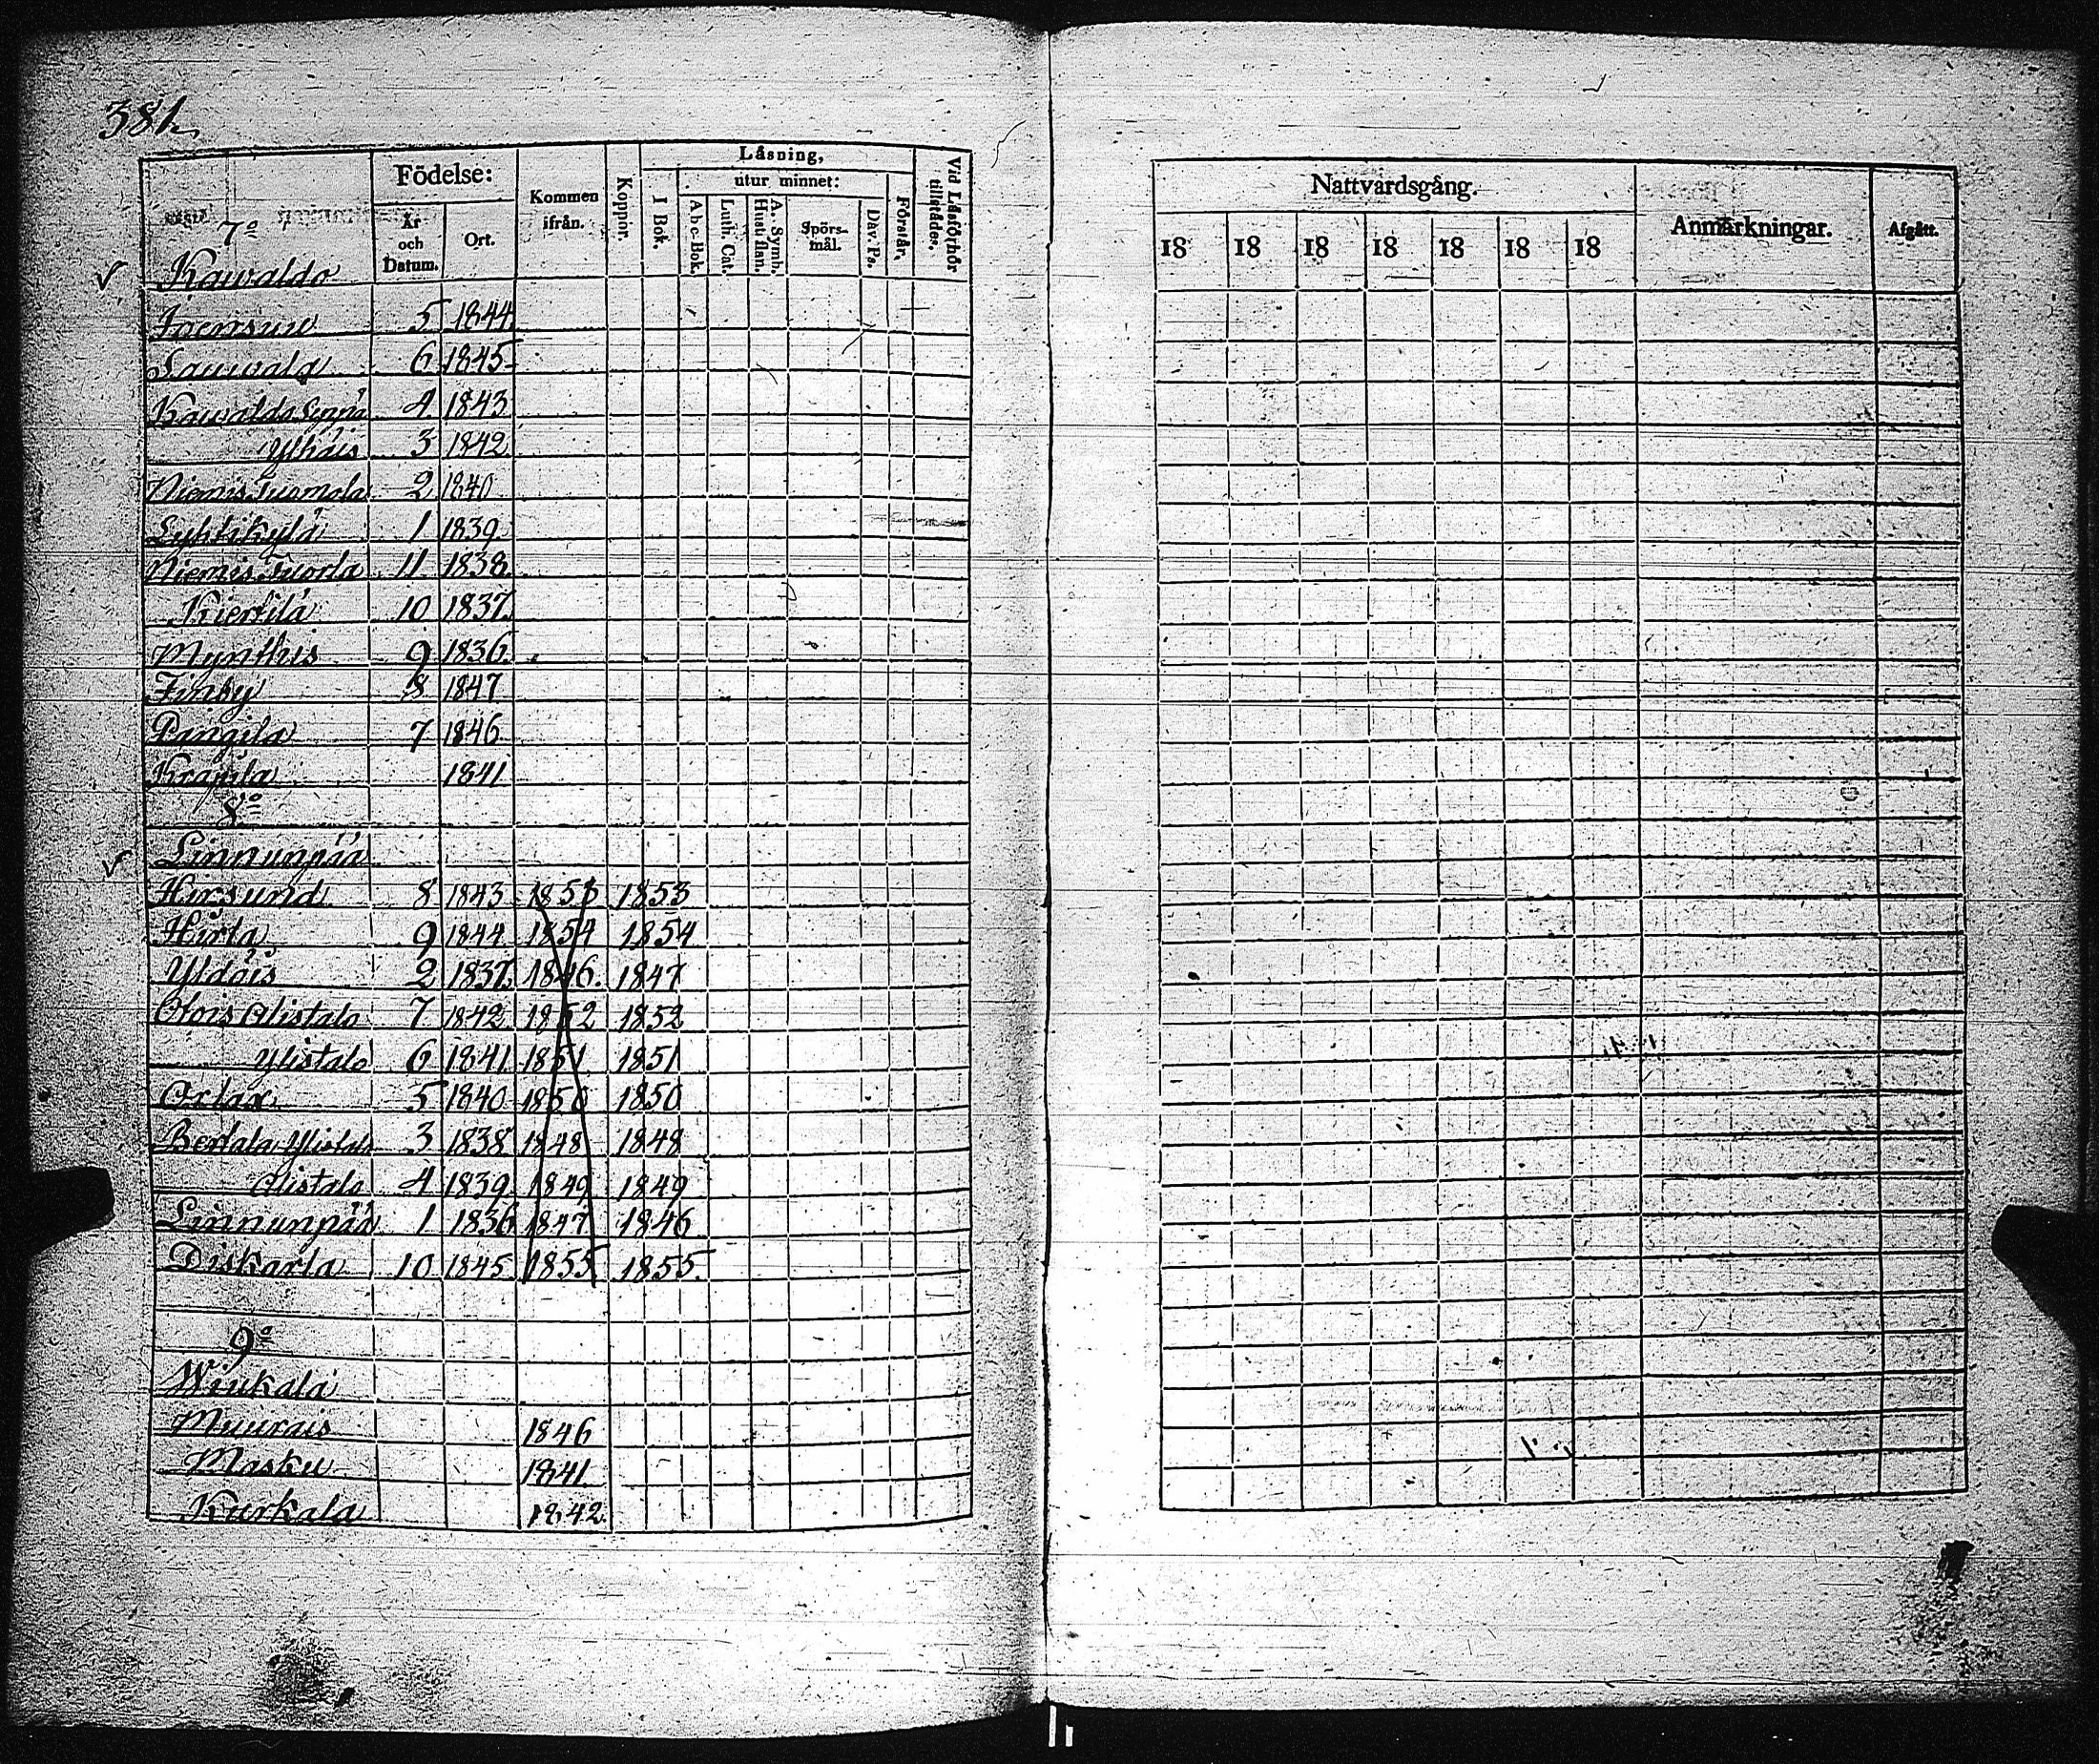 381
Födelse: Kommen ifrån. Koppor. Läsning, Vid Läsförhör tillstädes.
I Bok. utur minnet: Förstår.
År och Datum. Ort. Abc-Bok. Luth. Cat. A. Symb. Hustaflan. Spörs-mål. Dav. Ps.
7o
Kawaldo
Joensuu 5 1844
Sauwala 6 1845
Kawaldo 4 1843
Ylhäis 3 1842
Niemis Tuomola 2 1840
Lyhtikylä 1 1839
Niemis Tuorla 11 1838
Kierlilä 10 1837
Mynthis 9 1836
Finby 8 1847
Pangila 7 1846
1841
8o
Linnunpää
Hirsund 8 1843 1853 1853
Hirta 9 1844 1854 1854
Yldäis 2 1837 1846 1847
Otois Alistalo 7 1842 1852 1852
Ylistalo 6 1841 1851 1851
5 1840 1850 1850
Bertala Ylistalo 3 1838 1848 1848
Alistalo 4 1839 1849 1849
Linnunpää 1 1836 1847 1846
Diskarla 10 1845 1855 1855
9o
Wiukala
Muurais 1846
Masku 1841
Kurkala 1842
Nattvardsgång. Anmärkningar. Afgått.
18 18 18 18 18 18 18